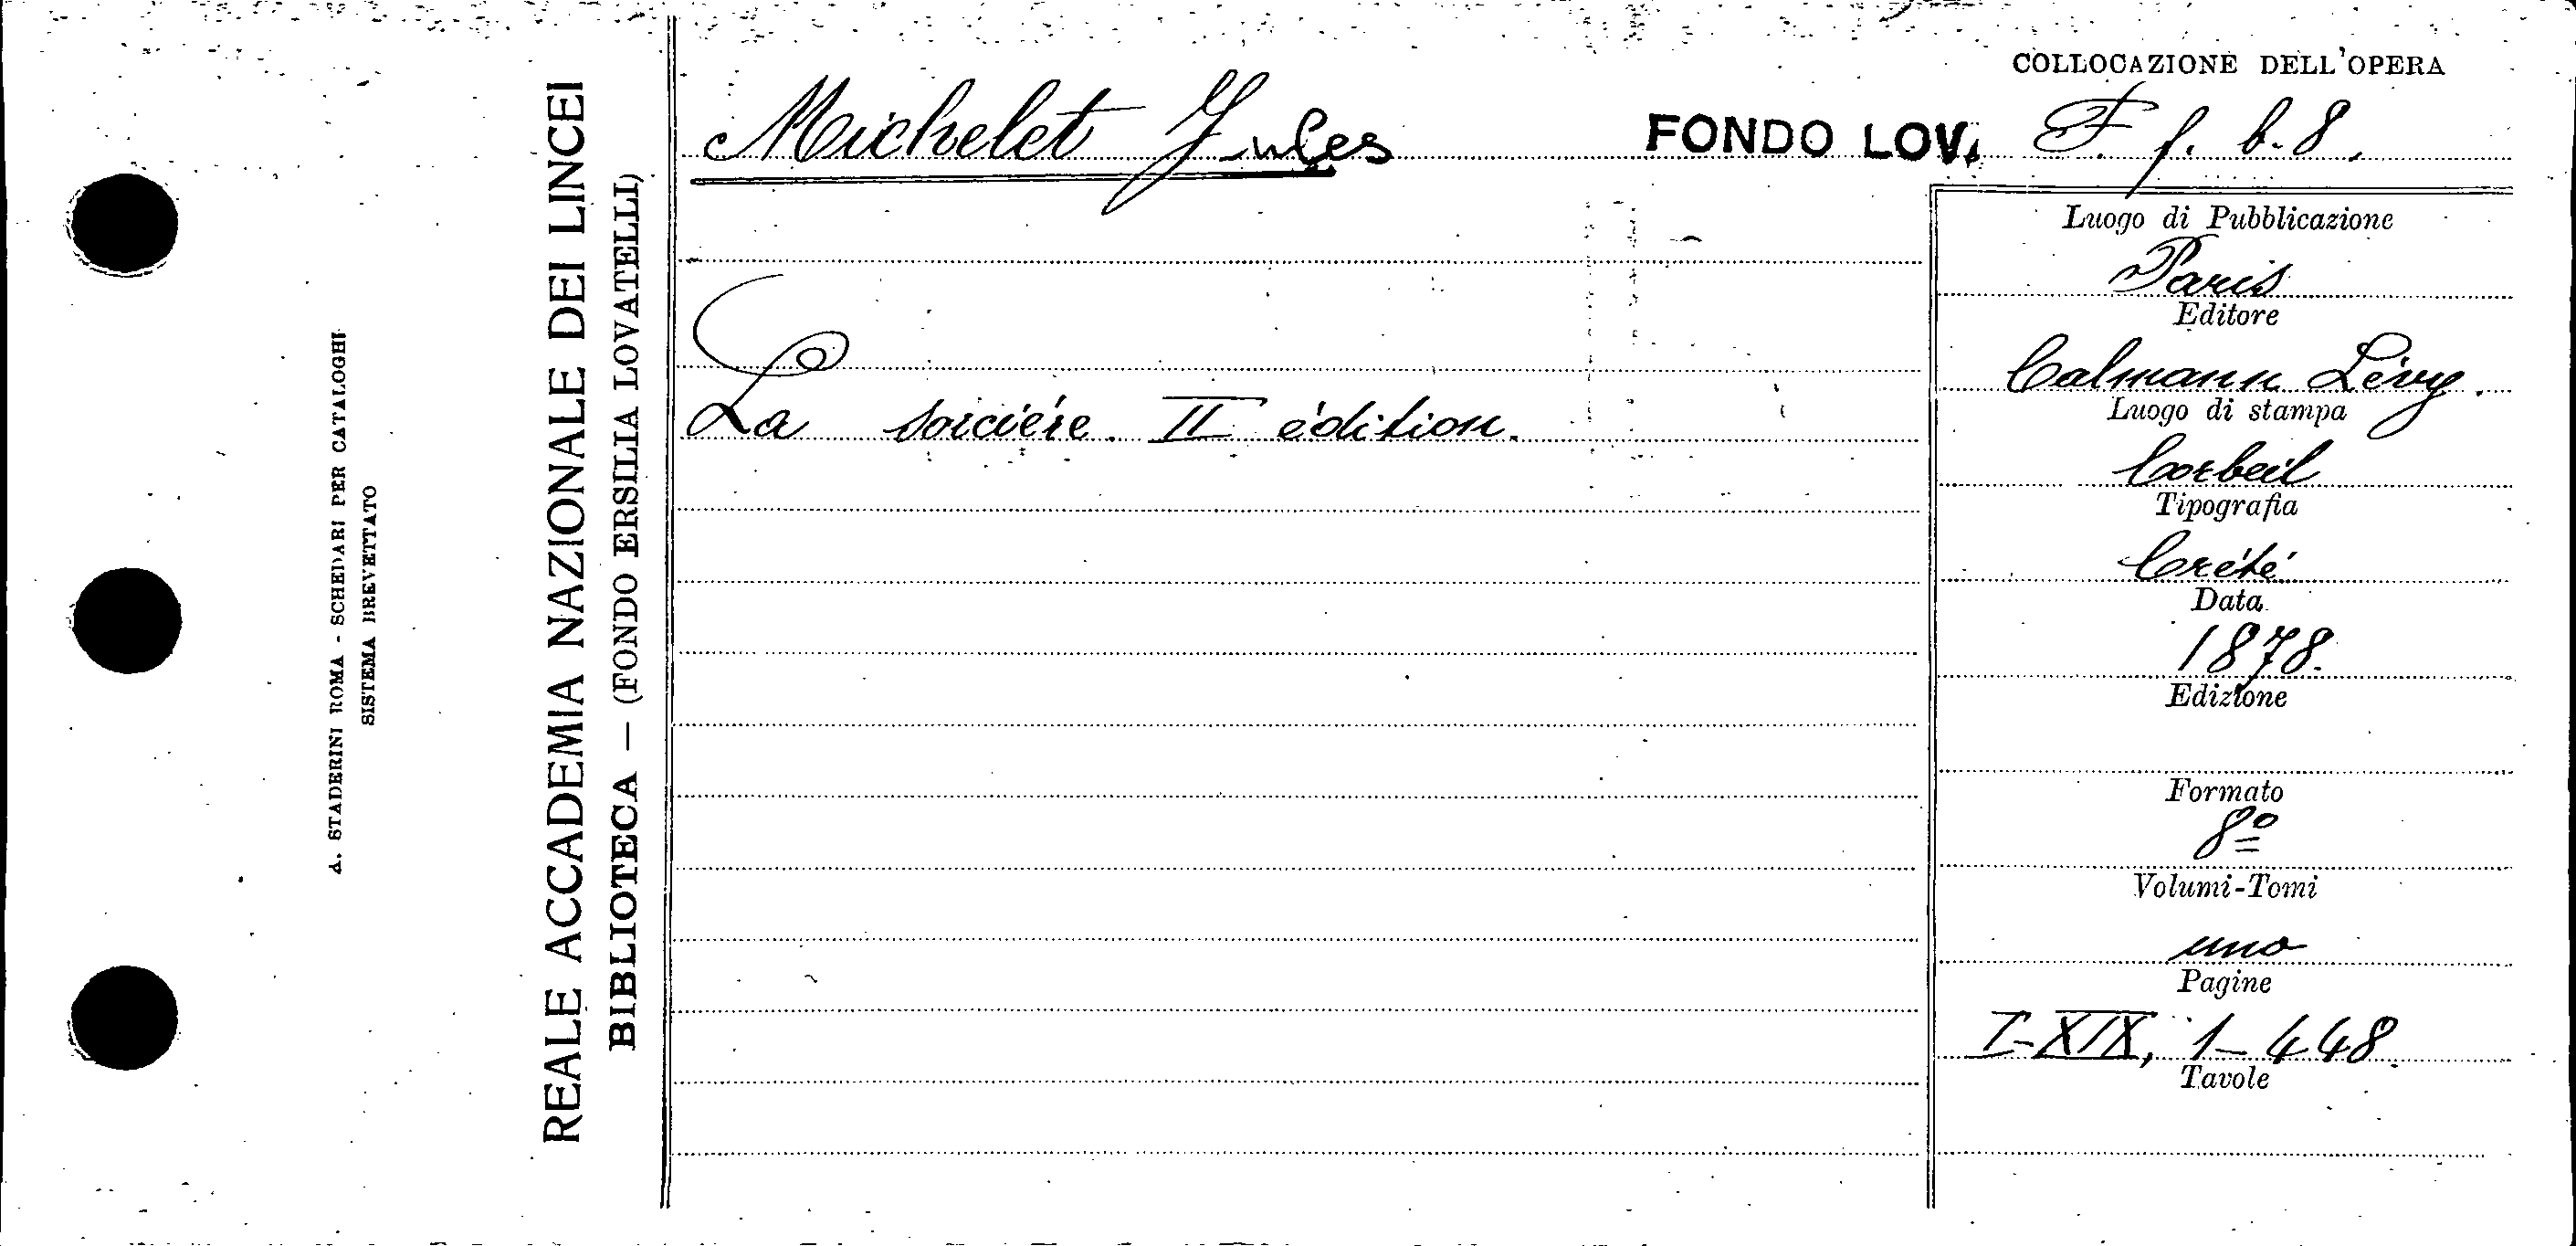 A. STADERINI ROMA - SCHEDARI PER CATALOGHI
SISTEMA BREVETTATO
REALE ACCADEMIA NAZIONALE DEI LINCEI
BIBLIOTECA — (FONDO ERSILIA LOVATELLI)
Michelet Jules
La sorciére. II édition.
COLLOCAZIONE DELL'OPERA
FONDO LOV. F. f. b. 8.
Luogo di Pubblicazione
Paris
Editore
Calmann Lévy.
Luogo di stampa
Corbeil
Tipografia
Crété
Data
1878.
Edizione
Formato
8º
Volumi-Tomi
uno
Pagine
I-XIX, 1-448.
Tavole